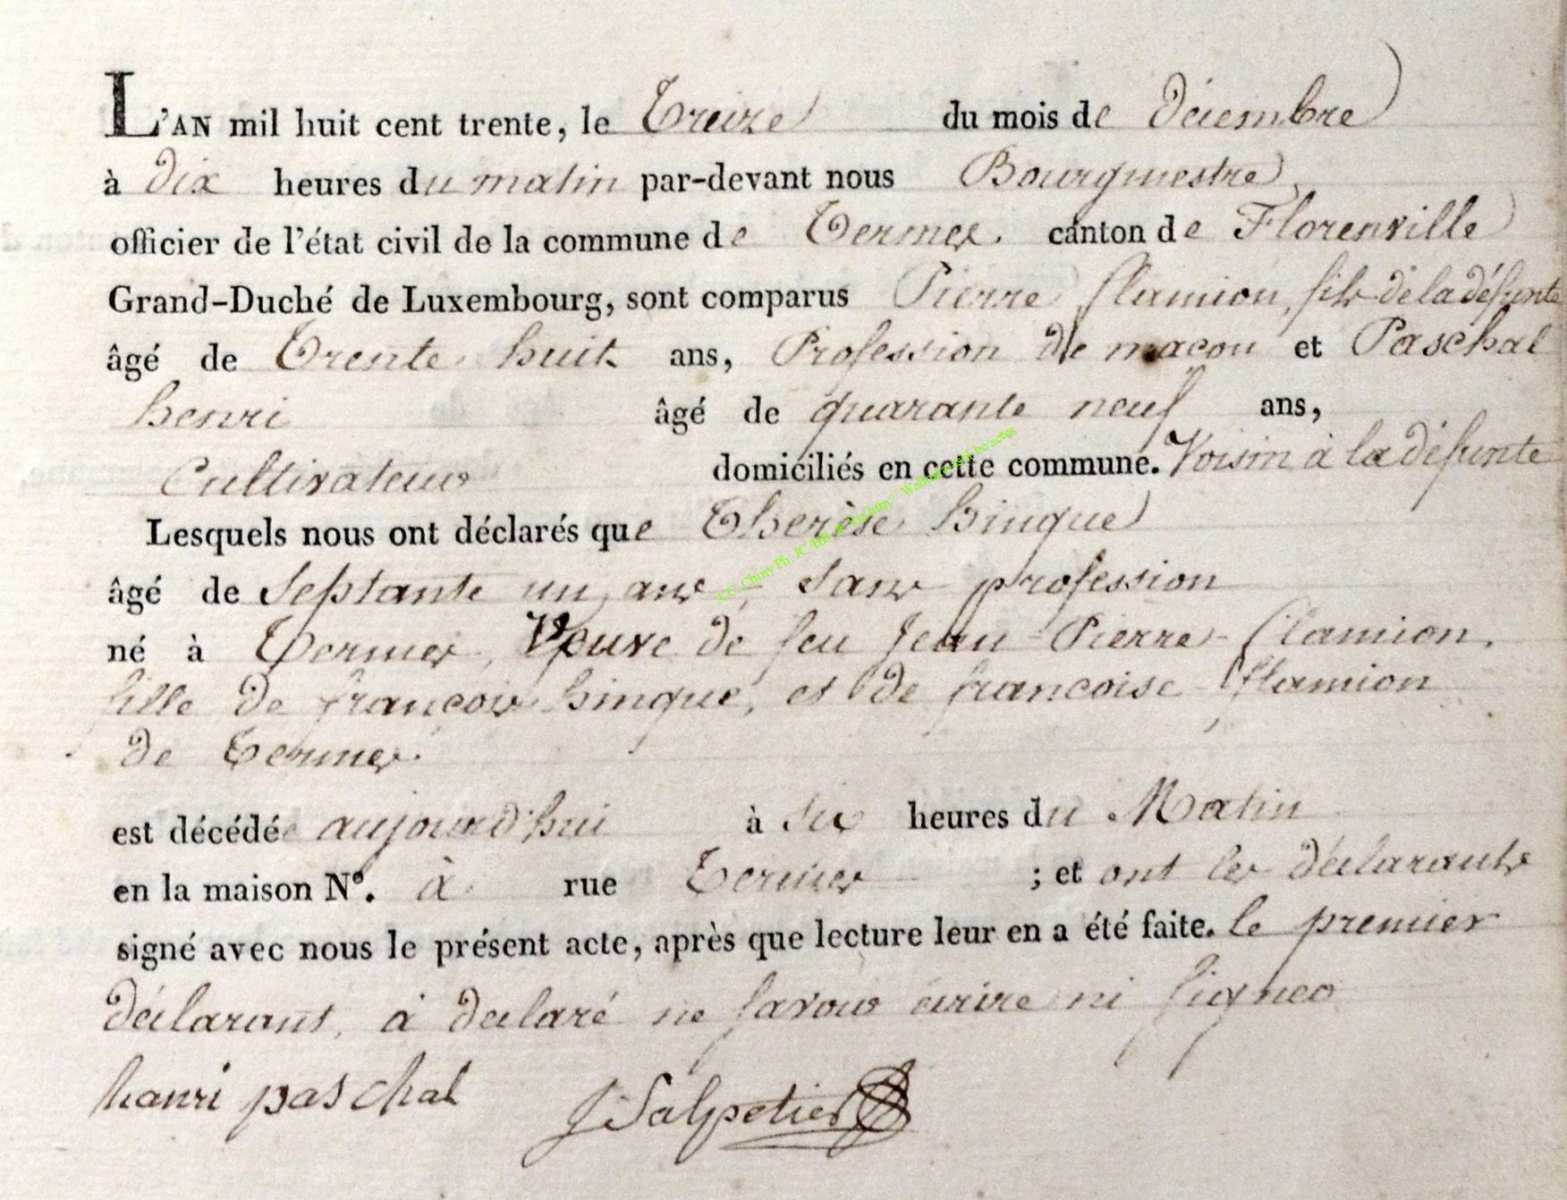 L'AN mil huit cent trente, le Treize du mois de décembre
à dix heures du matin par-devant nous Bourgmestre,
officier de l'état civil de la commune de Termes. canton de Florenville
Grand-Duché de Luxembourg, sont comparus Pierre flamion, fils de la défunte
âgé de Trente huit ans, Profession de maçon et Paschal
henri âgé de quarante neuf ans,
Cultivateur domiciliés en cette commune. Voisin à la défunte
Lesquels nous ont déclarés que Therèse hinque
âgé de Septante un ans, sans profession
né à Termes, Veuve de feu Jean Pierre flamion,
fille de françois hinque, et de francoise flamion
de Termes.
est décédée aujourd'hui à Six heures du Matin
en la maison N°. à rue Termes ; et ont les déclarants
signé avec nous le présent acte, après que lecture leur en a été faite. le premier
déclarant, à declaré ne savoir écrire ni signer
hanri paschal JSalpetier